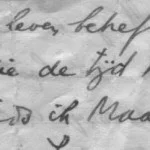 leven behef
ie de tijd
ik Maa